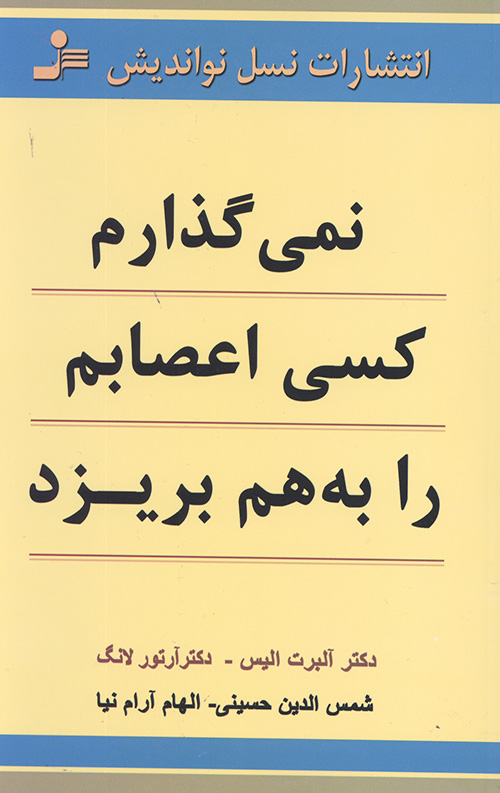 انتشارات نسل نواندیش
نمی‌گذارم
کسی اعصابم
را به هم بریزد
دکتر آلبرت الیس - دکتر آرتور لانگ
شمس الدین حسینی- الهام آرام نیا